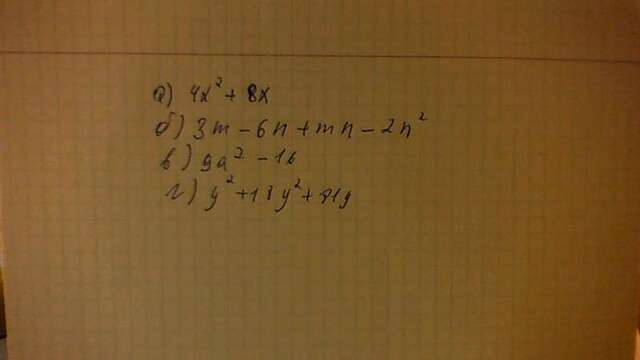 а) 4x² + 8x
б) 3m - 6n + mn - 2n²
в) 9a² - 16
г) y² + 18y² + 81y